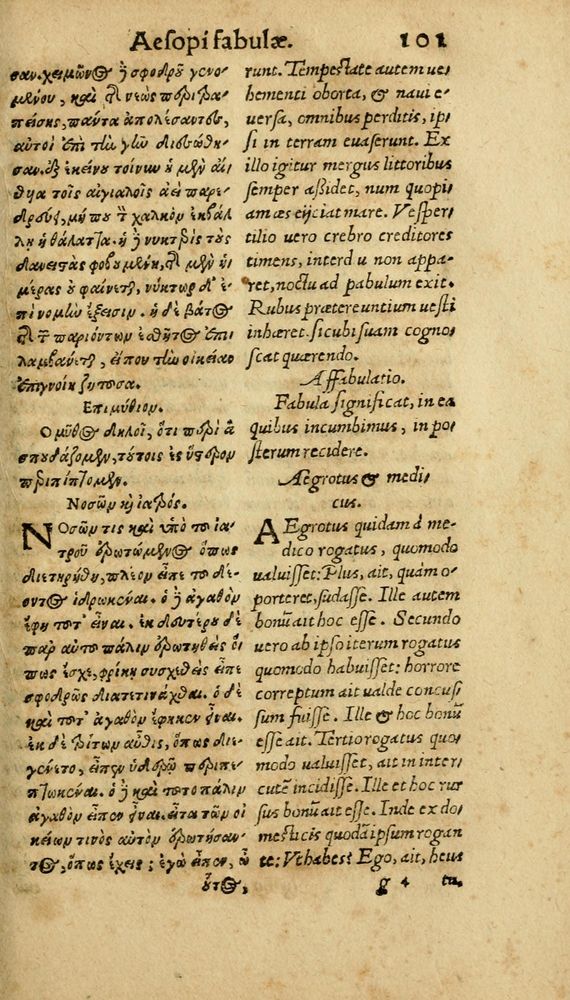 Aesopi fabulæ. 101
σαν. χειμῶνος ἢ σφοδροῦ γενο-
μένου, καὶ τῆς νεὼς περιτρα-
πείσης, πάντα ἀπολέσαντες,
αὐτοὶ ἐπὶ τὴν γῆν διεσώθη-
σαν. ἐξ ἐκείνου τοίνυν ἡ μὲν αἴ-
θυα τοῖς αἰγιαλοῖς ἀεὶ παρε-
δρεύει, μή που τὸν χαλκὸν ἐκβάλ
λῃ ἡ θάλαττα. ἡ δὲ νυκτερὶς τοὺς
δανειστὰς φοβουμένη, τῆς μὲν ἡ-
μέρας οὐ φαίνεται, νύκτωρ δ' ἐ-
πὶ νομὴν ἔξεισιν. ἡ δὲ βάτος
τῆς τῶν παριόντων ἐσθῆτος ἐπι-
λαμβάνεται, εἴπου τὴν οἰκείαν
ἐπιγνοίη ζητοῦσα.
Επιμύθιον.
Ο μῦθος δηλοῖ, ὅτι περὶ ἃ
σπουδάζομεν, τούτοις ἐς ὕστερον
περιπίπτομεν.
Νοσῶν καὶ ἰατρός.
ΝΟσῶν τις καὶ ὑπὸ τοῦ ἰα-
τροῦ ἐρωτώμενος ὅπως
διετηρήθη, πλέον εἶπε τοῦ δέ-
οντος ἱδρωκέναι. ὁ δὲ ἀγαθὸν
ἔφη τοῦτ' εἶναι. ἐκ δευτέρου δὲ
παρ' αὐτοῦ πάλιν ἐρωτηθεὶς ὅ-
πως ἔσχε, φρίκῃ συσχεθεὶς εἶπε
σφοδρῶς διατετινάχθαι. ὁ δὲ
καὶ τοῦτ' ἀγαθὸν ἔφησεν εἶναι.
ἐκ δὲ τρίτου αὖθις, ὅπως διε-
γένετο, εἶπεν ὑδέρῳ περιπε-
πτωκέναι. ὁ δὲ καὶ τοῦτο πάλιν
ἀγαθὸν εἶπεν εἶναι. εἶτα τῶν οἰ
κείων τινὸς αὐτὸν ἐρωτήσαν-
τος, ὅπως ἔχεις; ἐγὼ εἶπεν, ὦ
οὗτος,
runt. Tempestate autem ue-
hementi oborta, & naui e-
uersa, omnibus perditis, ip-
si in terram euaserunt. Ex
illo igitur mergus littoribus
semper aßidet, num quopi-
am æs eijciat mare. Vesper-
tilio uero crebro creditores
timens, interdiu non appa-
ret, noctu ad pabulum exit.
Rubus prætereuntium uesti
inhæret. sicubi suam cogno-
scat quærendo.
Affabulatio.
Fabula significat, in ea
quibus incumbimus, in po-
sterum recidere.
Aegrotus & medi-
cus.
AEgrotus quidam á me-
dico rogatus, quomodo
ualuisset: Plus, ait, quàm o-
porteret, sudasse. Ille autem
bonũ ait hoc esse. Secundo
uero ab ipso iterum rogatus
quomodo habuisset: horrore
correptum ait ualde concus-
sum fuisse. Ille & hoc bonũ
esse ait. Tertio rogatus quo-
modo ualuisset, ait in inter-
cutẽ incidisse. Ille et hoc rur
sus bonũ ait esse. Inde ex do-
mesticis quodã ipsum rogan
te: Vt habes? Ego, ait, heus
g 4 tu,